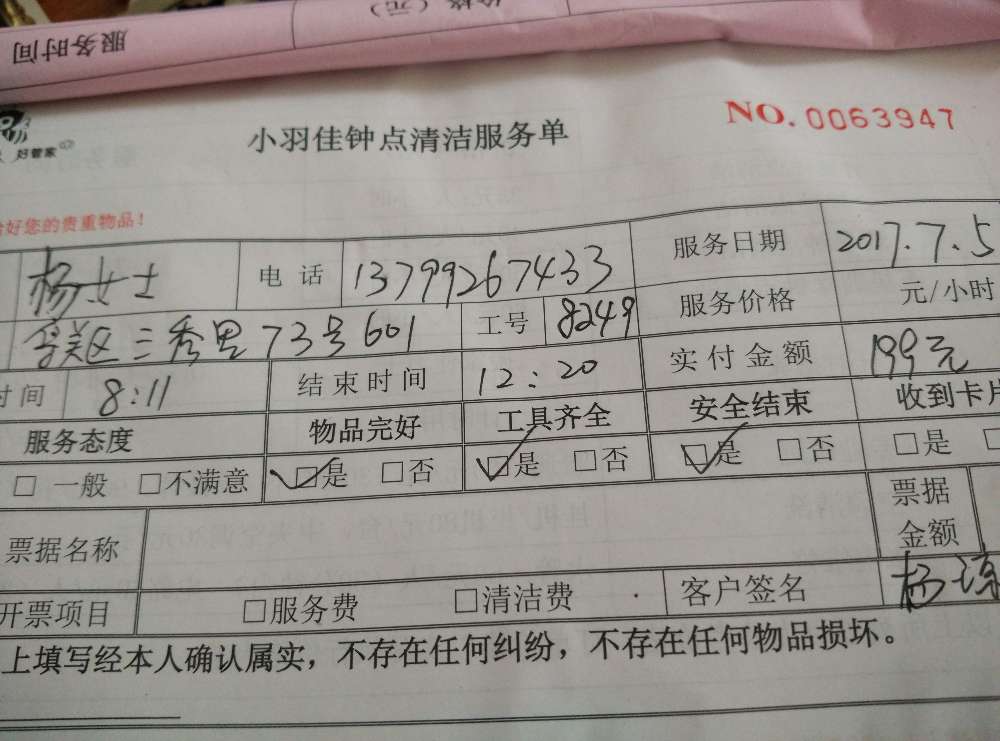 服务时间 价格（元）
NO. 0063947
好管家
小羽佳钟点清洁服务单
好您的贵重物品！
杨女士 电话 13799267433 服务日期 2017.7.5
集美区三秀里73号601 工号 8249 服务价格 元/小时
时间 8:11 结束时间 12:20 实付金额 199元
服务态度 物品完好 工具齐全 安全结束 收到卡片
□ 一般 □不满意 ☑是 □否 ☑是 □否 ☑是 □否 □是 □
票据名称 票据金额
开票项目 □服务费 □清洁费 客户签名 杨
上填写经本人确认属实，不存在任何纠纷，不存在任何物品损坏。